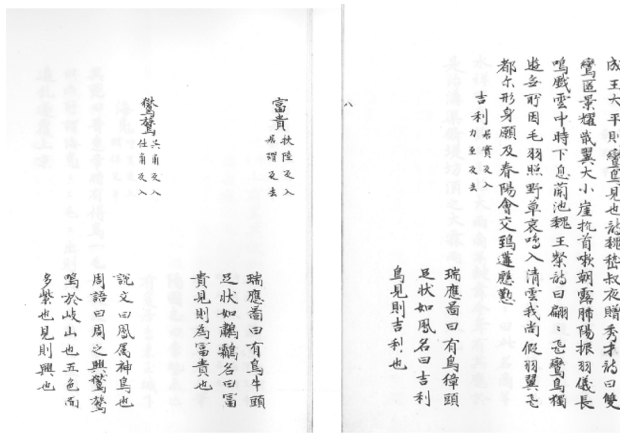 成王大平則鸞鳥見也詩魏嵇叔夜贈秀才詩曰雙
鸞匿景耀戢翼大小崖抗首嗽朝露腓陽振羽儀長
鳴戲雲中時下息蘭池魏王粲詩曰翩〻飛鸞鳥獨
遊無所因毛羽照野草哀鳴入清雲我尚假羽翼飛
都尓形身願及春陽會交頸遘慇懃
吉利 居實反入
力至反去
瑞應啚曰有鳥獐頭
足状如鳳名曰吉利
鳥見則吉利也
八
富貴 扶陸反入
居謂反去
瑞應啚曰有鳥牛頭
足状如名曰冨
貴見則為冨貴也
鸑鷟 五角反入
仕角反入
說文曰鳳属神鳥也
周語曰周之興鸑鷟
鳴於岐山也五色而
多紫也見則興也